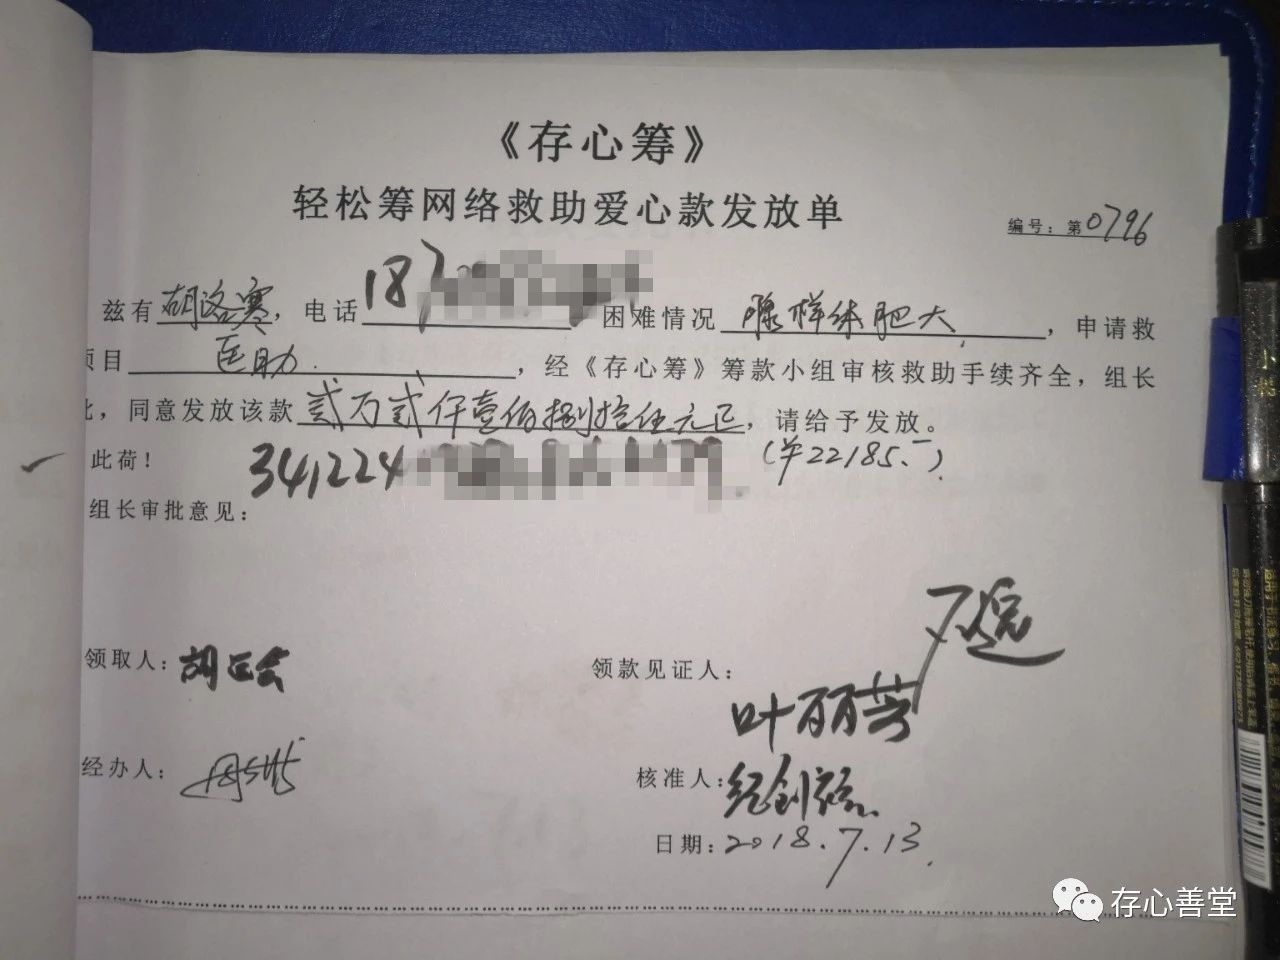 《存心筹》
轻松筹网络救助爱心款发放单
编号：第0796
兹有胡洛寒，电话18 困难情况腺样体肥大，申请救
项目医助，经《存心筹》筹款小组审核救助手续齐全，组长
，同意发放该款贰万贰仟壹佰捌拾伍元正，请给予发放。
此荷！ 341224 (¥22185.一)
组长审批意见：
领取人： 领款见证人：
叶丽芳
经办人： 核准人：
日期：2018.7.13.
存心善堂